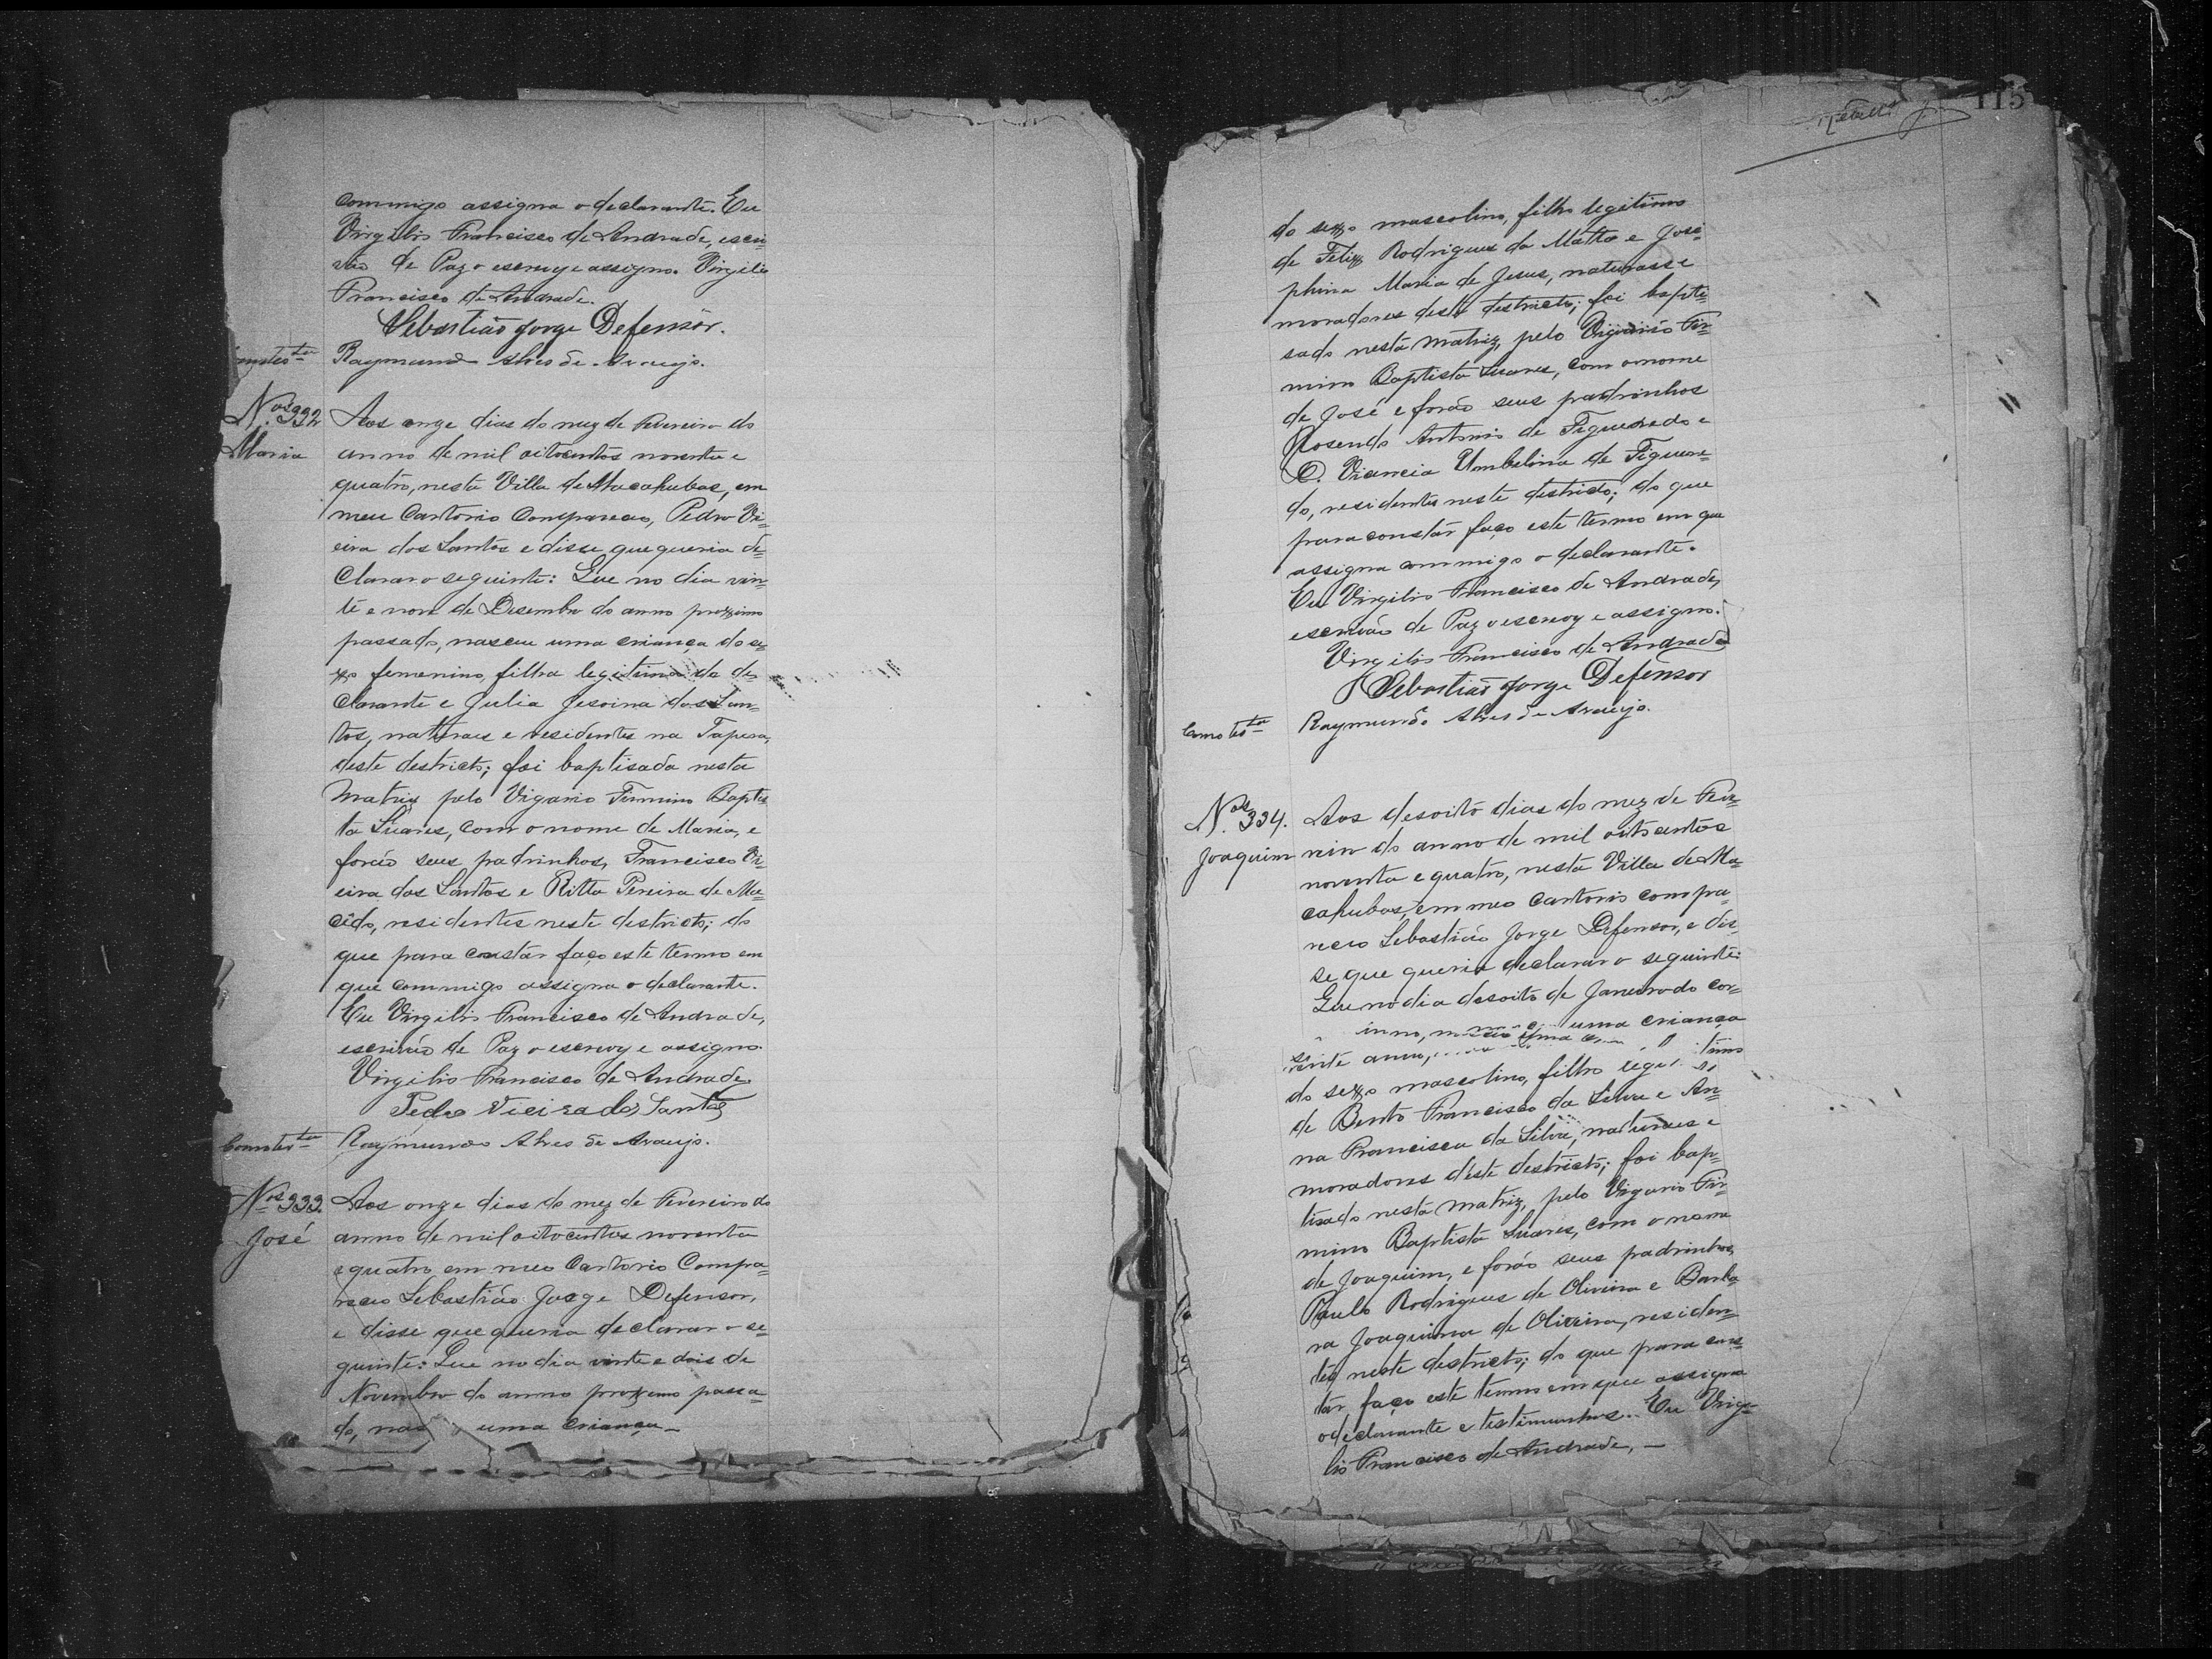 commigo assigna o declarante. Eu
Virgilio Francisco de Andrade, escri=
vão de Paz o escrevy e assigno. Virgilio
Francisco de Andrade.
Sebastião Jorge Defensôr.
Raymundo Alves de Araujo.
Nos. 332
Maria
Aos onze dias do mez de Fevereiro do
anno de mil oitocentos noventa e
quatro, nesta Villa de Macahubas, em
meu Cartorio Compareceo, Pedro Vi=
eira dos Santos e disse que queria de=
clarar o seguinte: Que no dia vin=
te e nove de Desembro do anno proximo
passado, nasceu uma criança do se=
xo femenino, filha legitima do de=
clarante e Julia Jesoina dos San=
tos, naturaes e residentes na Tapera,
deste destricto; foi baptisada nesta
Matriz pelo Vigario Firmino Baptis
ta Suares, com o nome de Maria, e
forão seus padrinhos, Francisco Vi=
eira dos Santos e Ritta Pereira de Ma=
cêdo, residentes neste destricto; do
que para constar faço este termo em
que commigo assigna o declarante.
Eu Virgilio Francisco de Andrade,
escrivão de Paz o escrevy e assigno.
Virgilio Francisco de Andrade.
Pedro Vieira dos Santos
Como testa
Raymundo Alves de Araujo.
Nos 333
José
Aos onze dias do mez de Fevereiro do
anno de mil oitocentos noventa
e quatro em meo Cartorio Compa=
receo Sebastião Jorge Defensor,
e disse que queria declarar o se=
guinte: Que no dia vinte e dois de
Novembro do anno proximo passa=
do, nas uma criança—
115
do sexo mascolino, filho legitimo
de Felix Rodrigues da Matta e Jose=
phina Maria de Jesus, naturaes e
moradores deste destricto; foi bapti=
sado nesta matriz, pelo Vigario Fir=
mino Baptista Suares, com o nome
de José e forão seus padrinhos
Rosendo Antonio de Figueredo e
D. Umbelina de Figuere=
do, residentes neste destricto; do que
para constar faço este termo em que
assigna commigo o declarante.
Eu Virgilio Francisco de Andrade,
escrivão de Paz o escrevy e assigno.
Virgilio Francisco de Andrade
Sebastião Jorge Defensor
Como testa
Raymundo Alves de Araujo.
Nos. 334.
Joaquim
Aos desoito dias do mez de Feve=
reiro do anno de mil oitocentos
noventa e quatro, nesta Villa de Ma=
cahubas, em meo Cartorio compa=
receo Sebastião Jorge Defensor, e dis=
se que queria declarar o seguinte:
Que no dia desoito de Janeiro do cor=
rente anno, uma criança
do sexo mascolino, filho legitimo
de Bento Francisco da Silva e An=
na Francisca da Silva, naturaes e
moradores deste destricto; foi bap=
tisado nesta matriz, pelo Vigario Fir=
mino Baptista Suares, com o nome
de Joaquim, e forão seus padrinhos
Paulo Rodrigues de Oliveira e Barba=
ra Joaquina de Oliveira, residen=
tes neste destricto; do que para cons=
tar, faço este termo em que assigna
o declarante e testimunhas. Eu Virgi=
lio Francisco de Andrade, —